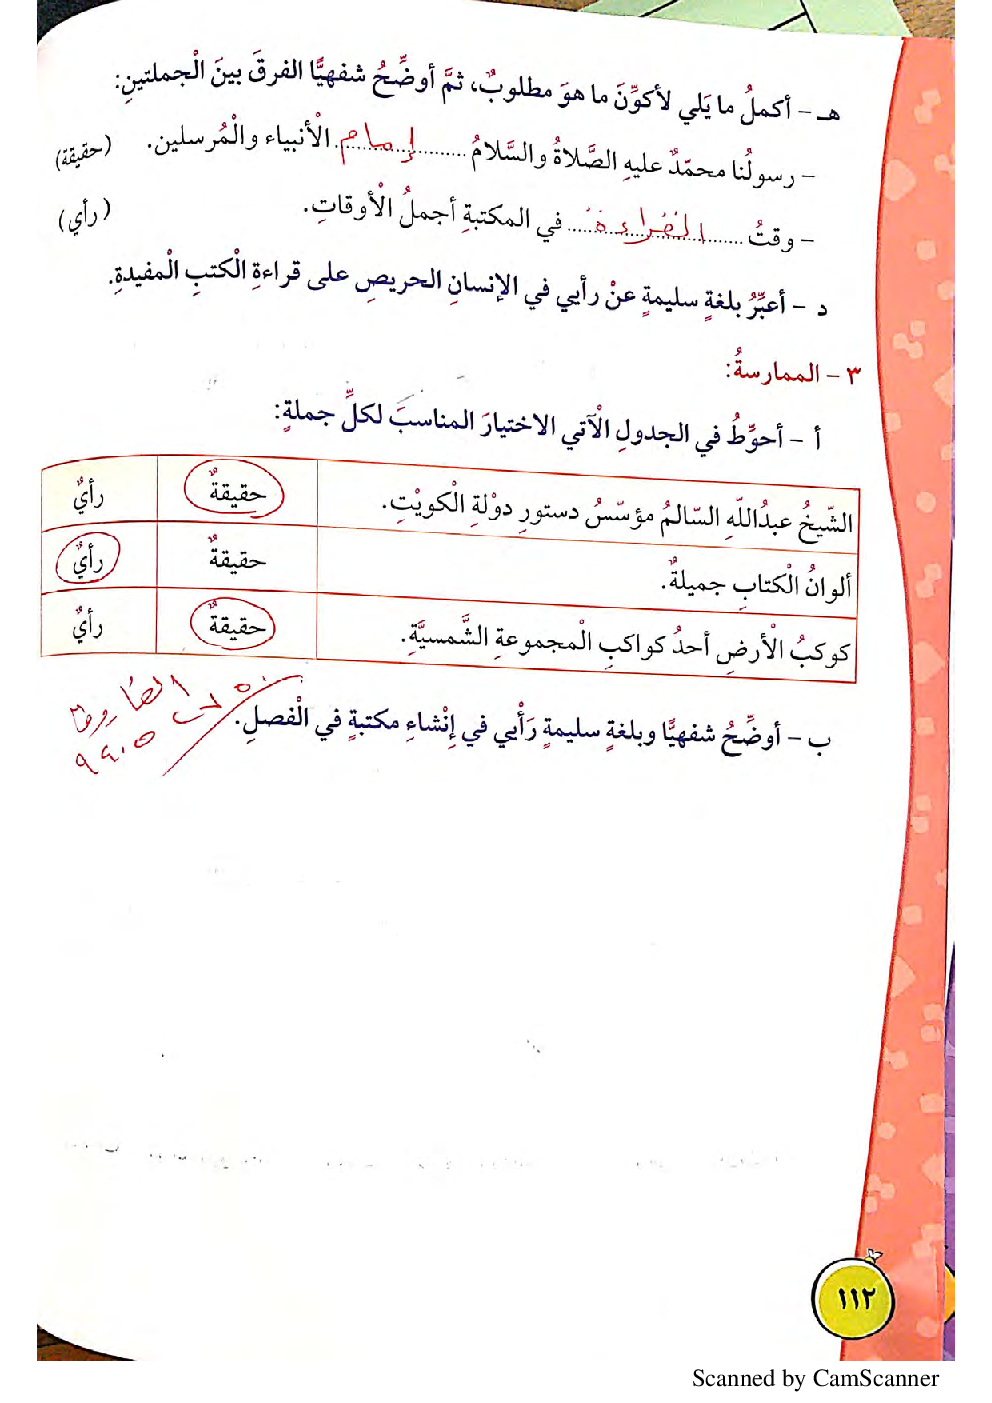 هـ - أكملُ ما يَلي لأكوِّنَ ما هوَ مطلوبٌ، ثمَّ أوضِّحُ شفهيًّا الفرقَ بينَ الْجملتينِ:
- رسولُنا محمّدٌ عليهِ الصَّلاةُ والسَّلامُ ......إمام...... الْأنبياء والْمُرسلين. (حقيقة)
- وقتُ ......القراءة...... في المكتبةِ أجملُ الْأوقاتِ. (رأي)
د - أعبِّرُ بلغةٍ سليمةٍ عنْ رأيي في الإنسانِ الحريصِ على قراءةِ الْكتبِ الْمفيدةِ.
٣ - الممارسةُ:
أ - أحوِّطُ في الجدولِ الْآتي الاختيارَ المناسبَ لكلِّ جملةٍ:
الشّيخُ عبدُاللّهِ السّالمُ مؤسّسُ دستورِ دوْلةِ الْكويْتِ. حقيقةٌ رأيٌ
ألوانُ الْكتابِ جميلةٌ. حقيقةٌ رأيٌ
كوكبُ الْأرضِ أحدُ كواكبِ الْمجموعةِ الشَّمسيَّةِ. حقيقةٌ رأيٌ
ب - أوضِّحُ شفهيًّا وبلغةٍ سليمةٍ رَأْيي في إِنْشاءِ مكتبةٍ في الْفصلِ.
١١٢
Scanned by CamScanner